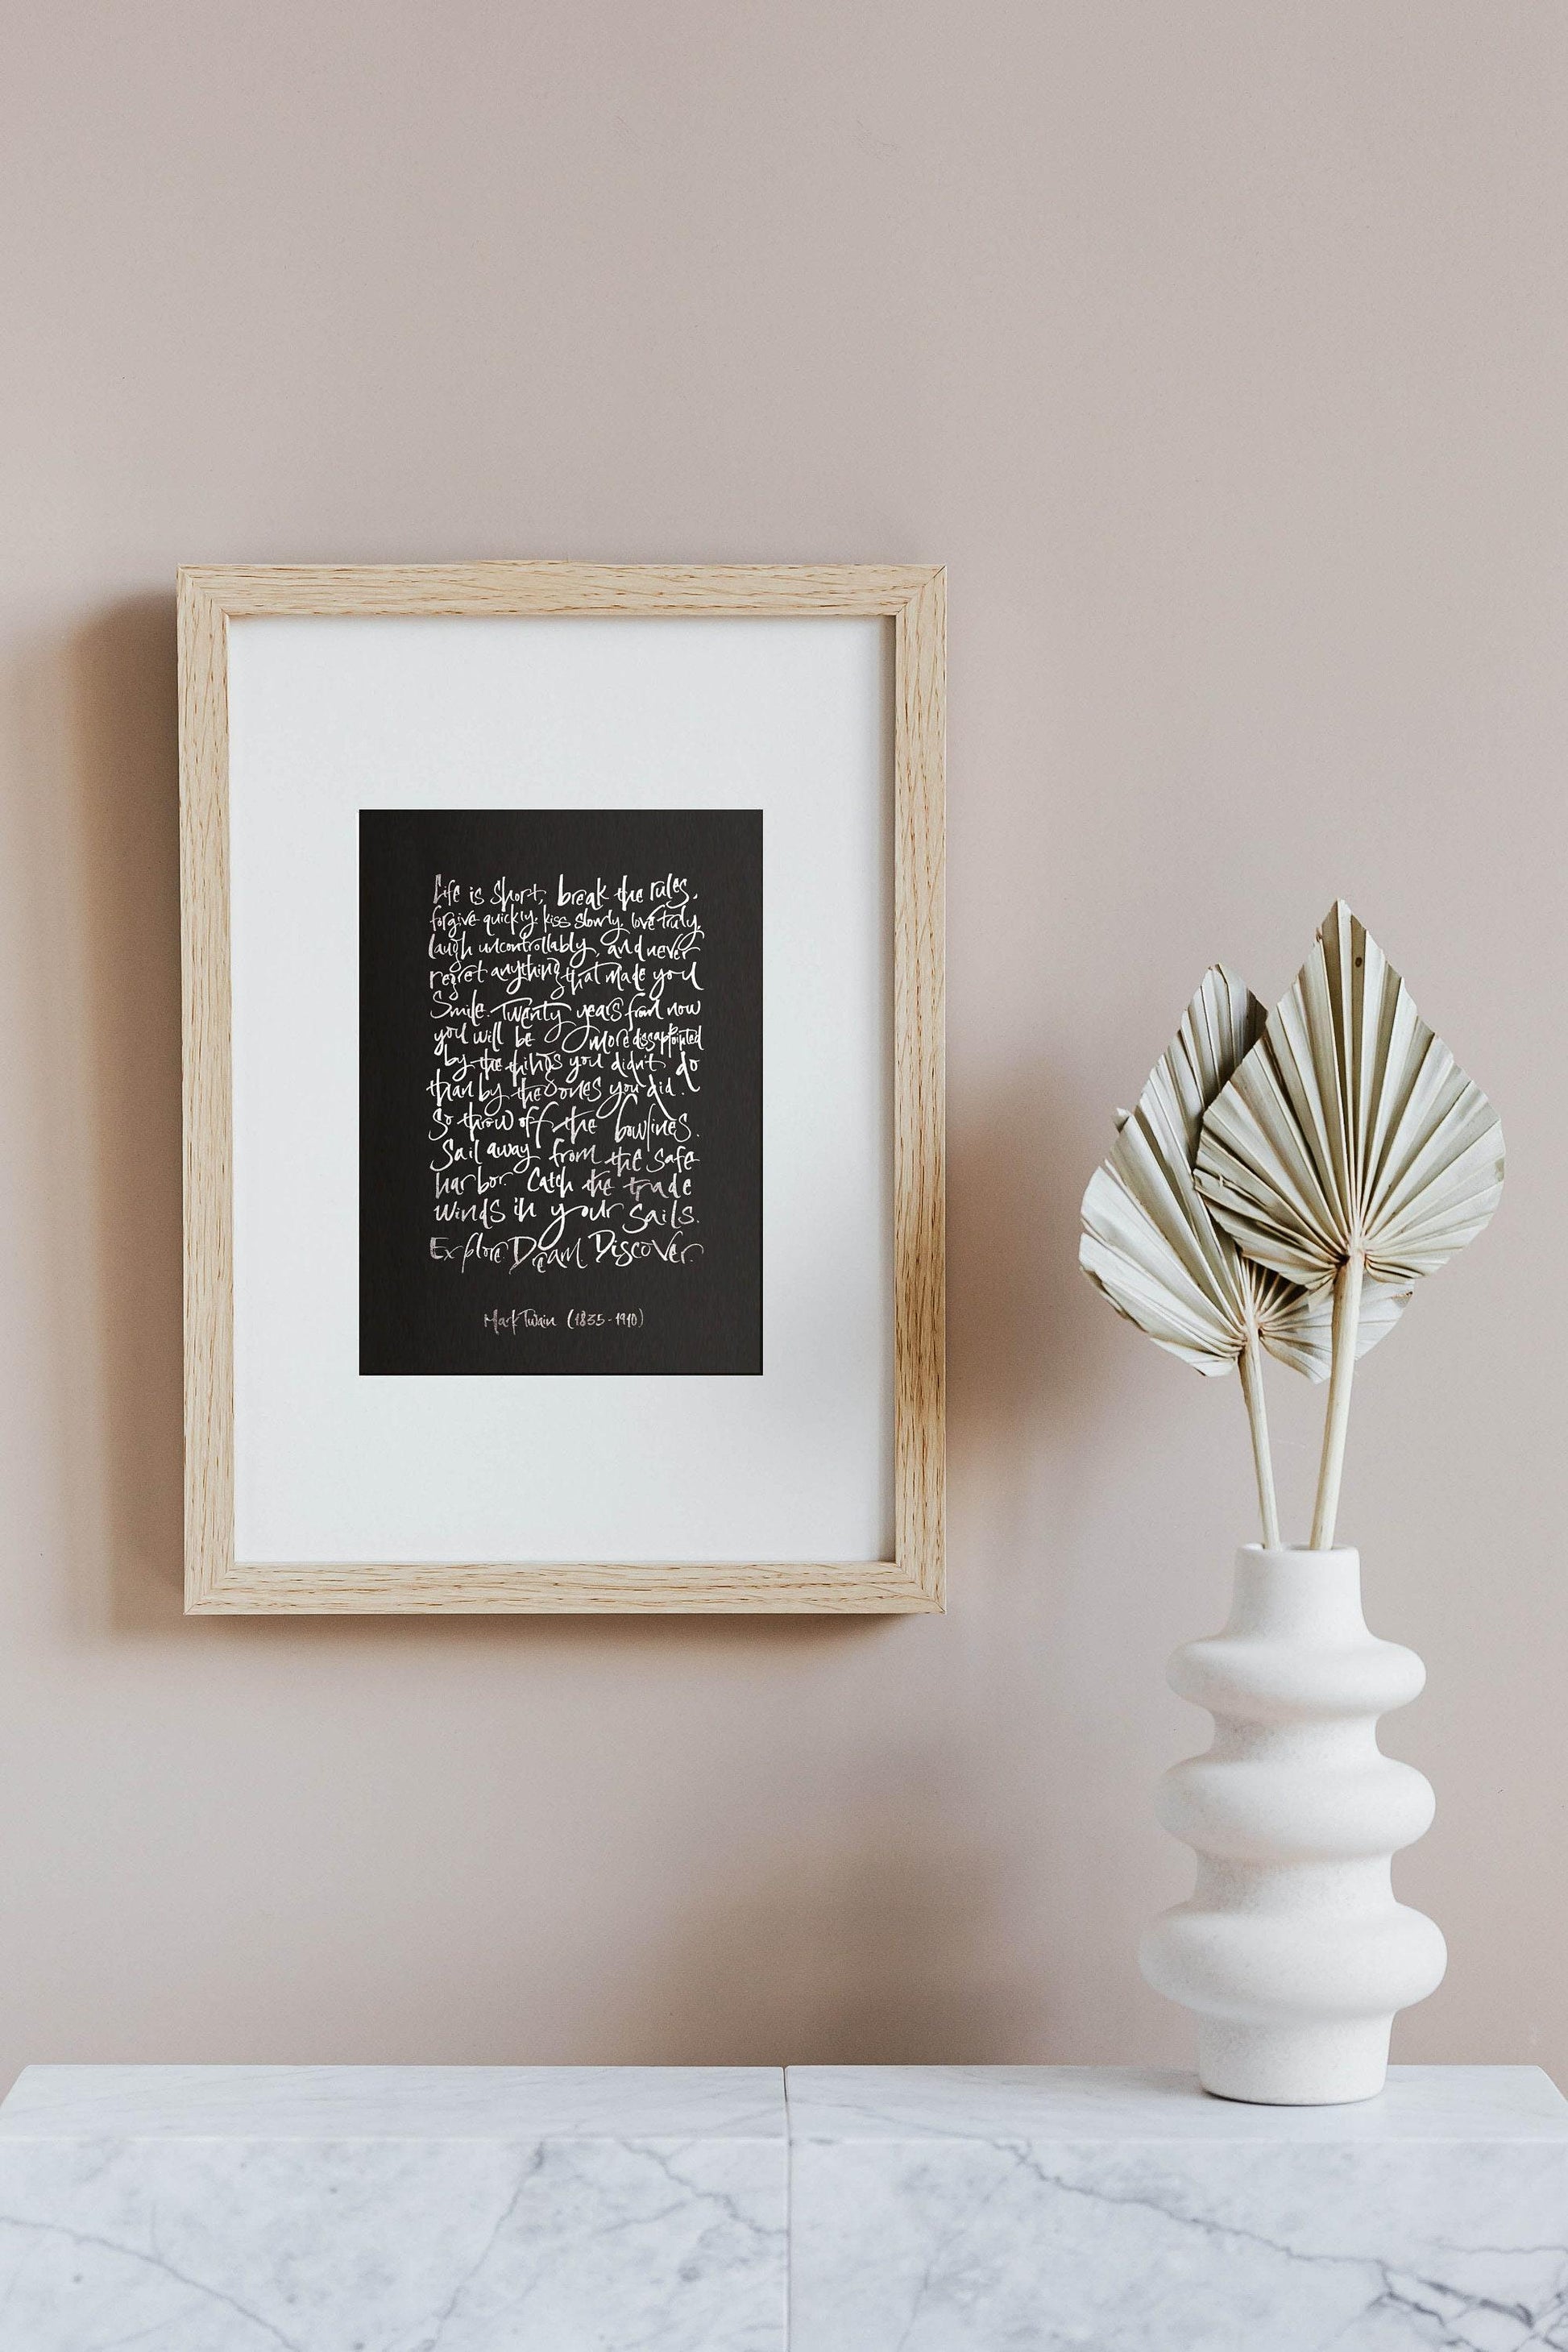 Life is short, break the rules,
forgive quickly, kiss slowly, love truly,
laugh uncontrollably, and never
regret anything that made you
Smile. Twenty years from now
you will be more dissappointed
by the things you didn't do
than by the ones you did.
So throw off the bowlines.
Sail away from the safe
harbor. Catch the trade
winds in your sails.
Explore Dream Discover.
Mark Twain (1835-1910)